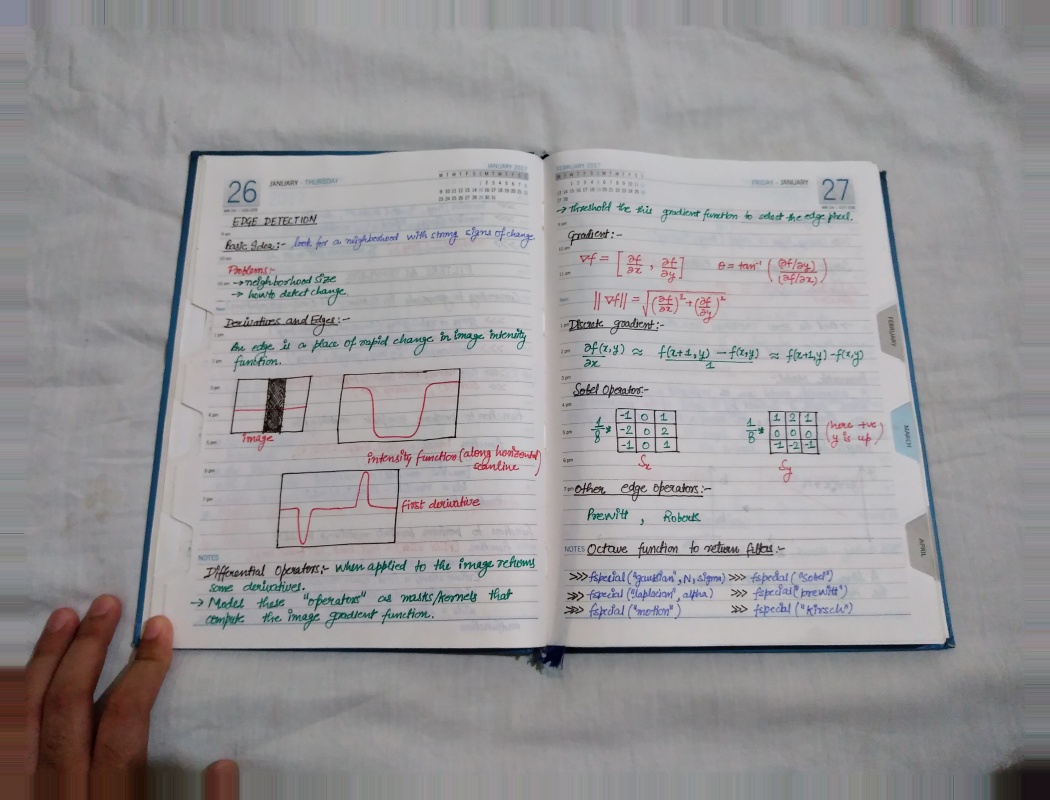 JANUARY 2017
26 JANUARY - THURSDAY
EDGE DETECTION
Basic Idea:- look for a neighborhood with strong signs of change
Problems:-
→ neighborhood size
→ how to detect change
Derivatives and Edges:-
An edge is a place of rapid change in image intensity
function.
image
intensity function (along horizontal
scanline
first derivative
NOTES
Differential Operators:- when applied to the image returns
some derivatives.
→ Model these "operators" as masks/kernels that
compute the image gradient function.
FEBRUARY 2017
FRIDAY - JANUARY 27
→ threshold the this gradient function to select the edge pixel.
Gradient:-
∇f = [∂f/∂x , ∂f/∂y] θ = tan⁻¹ ((∂f/∂y)/(∂f/∂x))
||∇f|| = √((∂f/∂x)² + (∂f/∂y)²)
Discrete gradient:-
∂f(x,y)/∂x ≈ f(x+1, y) - f(x,y)/1 ≈ f(x+1,y) - f(x,y)
Sobel Operator:-
-1 0 1 1 2 1
1/8 * -2 0 2 1/8 * 0 0 0 (here +ve
-1 0 1 -1 -2 -1 y is up)
Sx Sy
Other edge operators:-
Prewitt , Roberts
NOTES Octave function to return filters:-
>>> fspecial ("gaussian", N, sigma) >>> fspecial ("sobel")
>>> fspecial ("laplacian", alpha) >>> fspecial ("prewitt")
>>> fspecial ("motion") >>> fspecial ("kirsch")
FEBRUARY
MARCH
APRIL